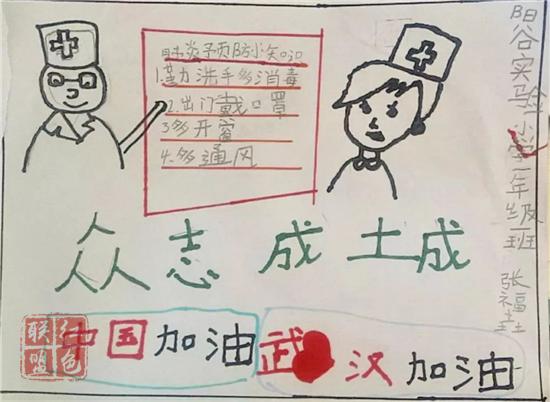 肺炎预防小知识
1.勤洗手多消毒
2.出门戴口罩
3多开窗
4.多通风
众志成城
中国加油武汉加油
阳谷实验小学一年级一班
张福
红色联盟